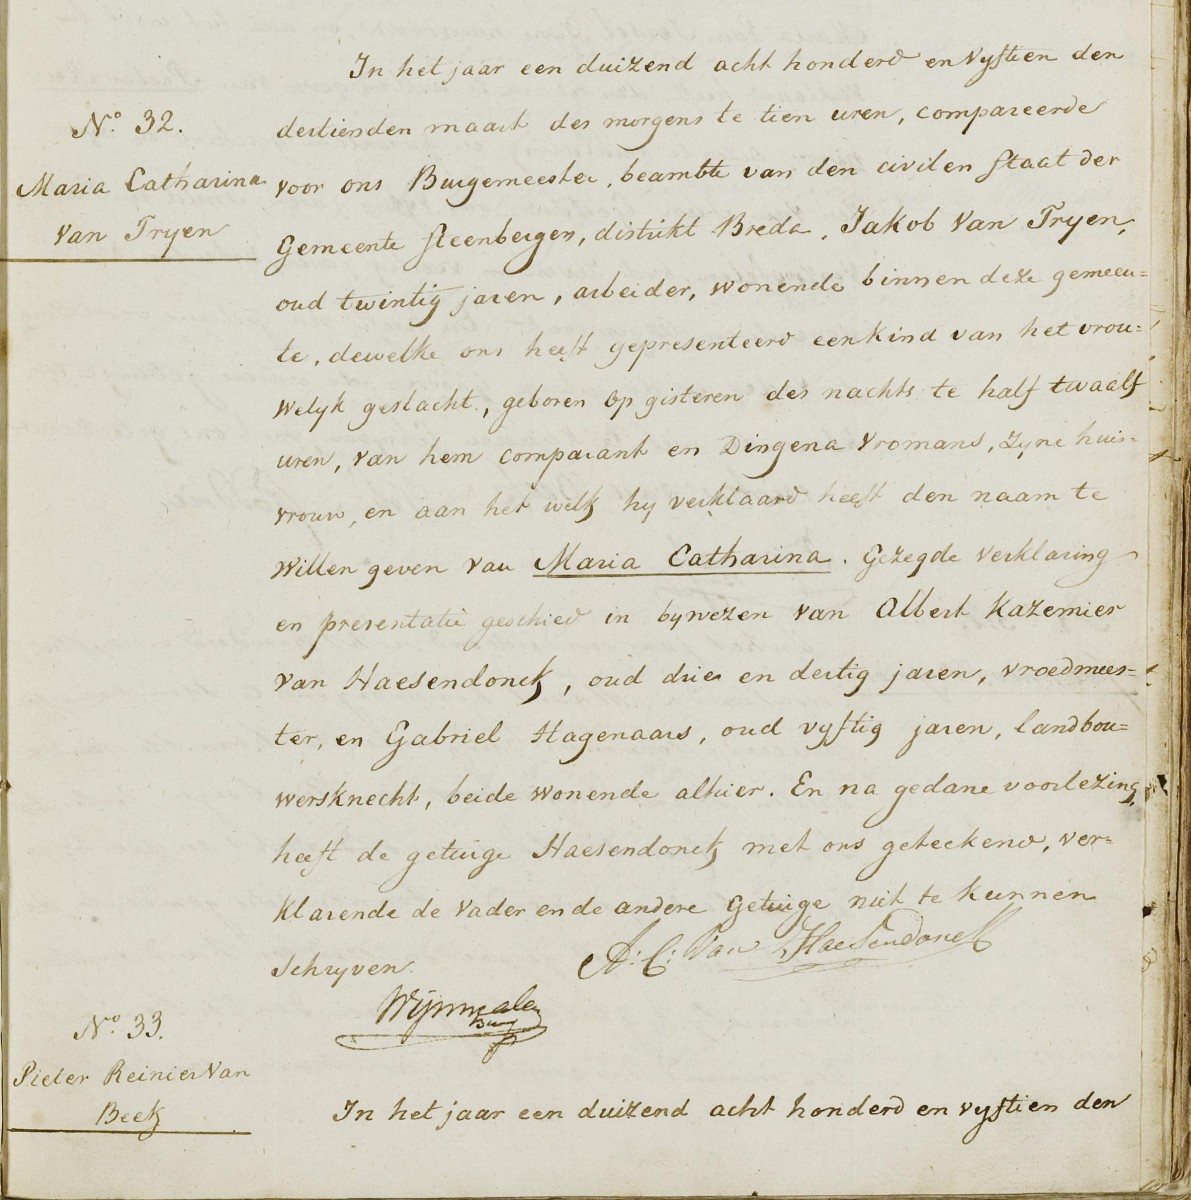 N.º 32.
Maria Catharina
van Tryen
In het jaar een duizend acht honderd en vyftien den
dertienden maart des morgens te tien uren, compareerde
voor ons Burgemeester, beambte van den civilen Staat der
Gemeente Steenbergen, distrikt Breda, Jakob van Tryen,
oud twintig jaren, arbeider, wonende binnen deze gemeen=
te, dewelke ons heeft gepresenteerd een kind van het vrou=
welyk geslacht, geboren op gisteren des nachts te half twaalf
uren, van hem comparant en Dingena Vromans, zyne huis-
vrouw, en aan het welk hy verklaard heeft den naam te
willen geven van Maria Catharina. Gezegde verklaring
en presentatie geschied in bywezen van Albert Kazemier
van Haesendonck, oud drie en dertig jaren, vroedmees=
ter, en Gabriel Hagenaars, oud vyftig jaren, landbou=
wersknecht, beide wonende alhier. En na gedane voorlezing,
heeft de getuige Haesendonck met ons geteekend, ver=
klarende de vader en de andere getuige niet te kunnen
schryven.
A: C: Van Haesendonck
Wijnmalen
Burg
N.º 33.
Pieter Reinier Van
Beek
In het jaar een duizend acht honderd en vyftien den